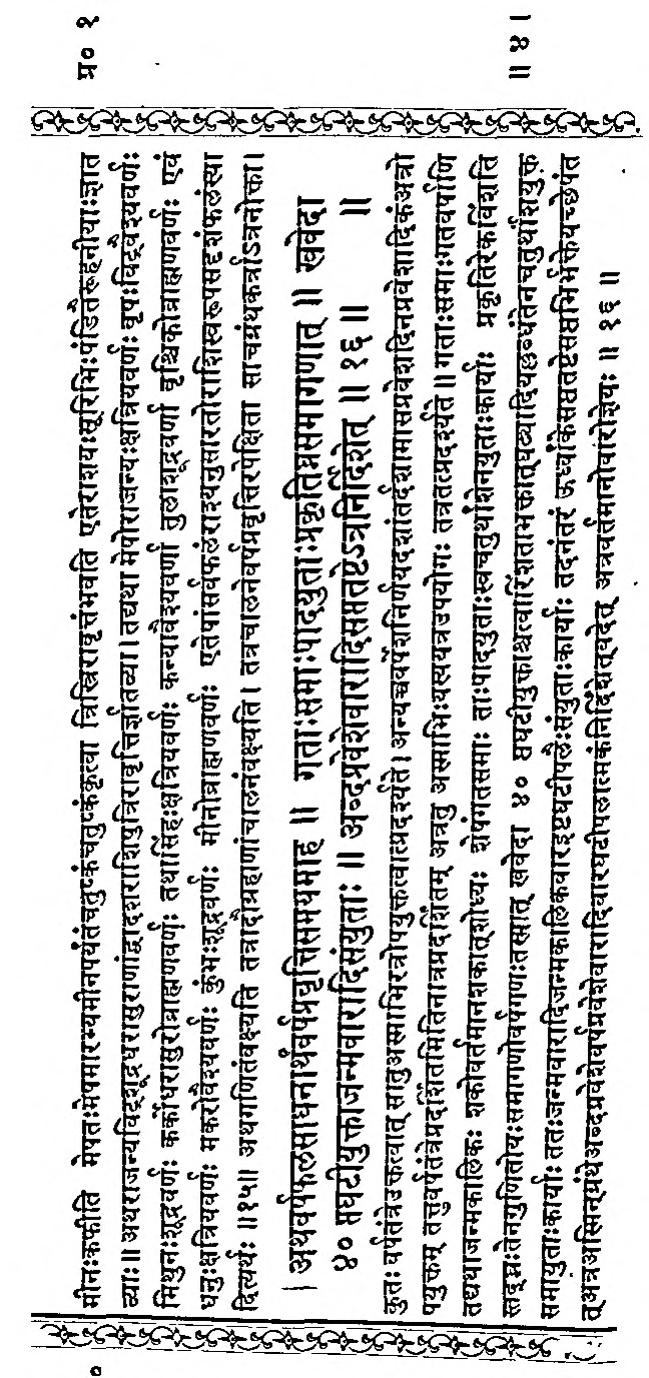 प्र० १
॥ ४ ।
मीनःकफीति मेषतःमेषमारभ्यमीनपर्यंतंचतुष्कंचतुष्कंकृत्वा त्रिस्त्रिरावृत्तंभवति एतेराशयःसूरिभिःपंडितैरूहनीयाःज्ञात
व्याः॥ अथराजन्यविट्शूद्रधरासुराणांद्वादशराशिषुत्रिरावृत्तिर्ज्ञातव्या। तद्यथा मेषोराजन्यःक्षत्रियवर्णः वृषःविट्वैश्यवर्णः
मिथुनःशूद्रवर्णः कर्कोधरासुरोब्राह्मणवर्णः तथासिंहःक्षत्रियवर्णः कन्यावैश्यवर्णा तुलाशूद्रवर्णा वृश्चिकोब्राह्मणवर्णः एवं
धनुःक्षत्रियवर्णः मकरोवैश्यवर्णः कुंभःशूद्रवर्णः मीनोब्राह्मणवर्णः एतेषांसर्वफलंराश्यनुसारतोराशिस्वरूपसदृशंफलंस्या
दित्यर्थः ॥१५॥ अथगणितंवक्ष्यति तत्रादौग्रहाणांचालनंवक्ष्यति। तत्रचालनेवर्षप्रवृत्तिरपेक्षिता साचग्रंथकर्त्राऽत्रनोक्ता।
। अथवर्षफलसाधनार्थंवर्षप्रवृत्तिसमयमाह ॥ गताःसमाःपादयुताःप्रकृतिघ्नसमागणात् ॥ खवेदा
४० प्तघटीयुक्ताजन्मवारादिसंयुताः ॥ अब्दप्रवेशेवारादिसप्ततष्टेऽत्रनिर्दिशेत् ॥ १६ ॥ ॥
कुतः वर्षतंत्रेउक्तत्वात् सातुअस्माभिरत्रोपयुक्तत्वात्प्रदर्श्यते। अन्यच्चवर्षेशनिर्णयदशांतर्दशामासप्रवेशदिनप्रवेशादिकंअत्रो
पयुक्तम् तत्तुवर्षतंत्रेप्रदर्शितमितिनात्रप्रदर्शितम् अत्रतु अस्माभिःयत्स्ययत्रउपयोगः तत्रतत्प्रदर्श्यते ॥ गताःसमाःगतवर्षाणि
तद्यथाजन्मकालिकः शकोवर्तमानशकात्शोध्यः शेषंगतसमाः ताःपादयुताःस्वचतुर्थांशेनयुताःकार्याः प्रकृतिरेकविंशति
स्तद्घ्नःतेनगुणितोयःसमागणोवर्षगणःतस्मात् खवेदा ४० प्तघटीयुक्ताश्चत्वारिंशताभक्तात्घट्यादियल्लब्धंतेनचतुर्थांशयुक्
समायुताःकार्याः ततःजन्मवारादिजन्मकालिकवारइष्टघटीपलैःसंयुताःकार्याः तदनंतरं ऊर्ध्वांकेसप्ततष्टेसप्तभिर्भक्तेयच्छेषंत
त्अत्रअस्मिन्ग्रंथेअब्दप्रवेशेवर्षप्रवेशेवारादिवारघटीपलात्मकंनिर्दिशेत्वदेत् अत्रवर्तमानोवारोज्ञेयः ॥ १६ ॥